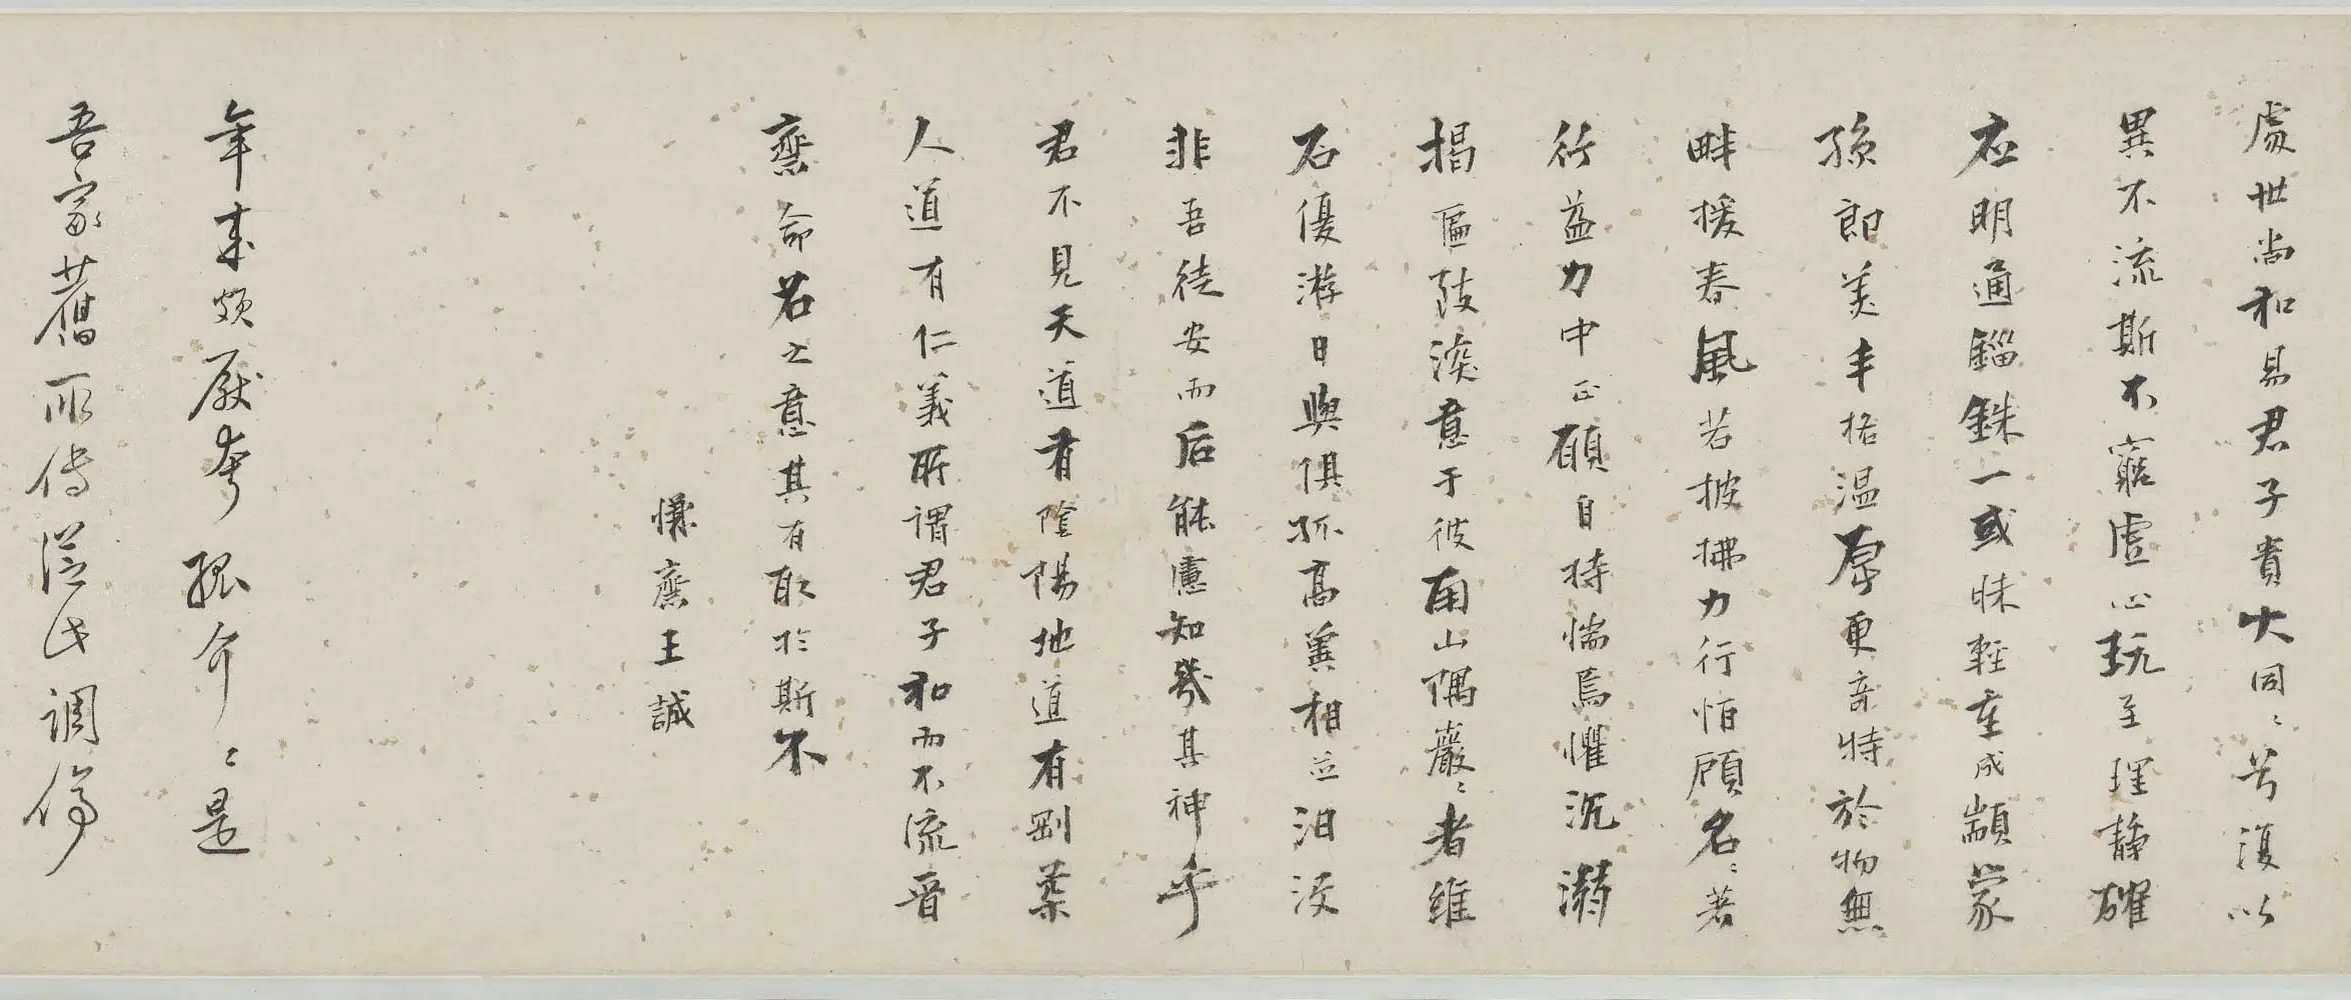 處世尚和易君子貴大同〻苟復以
異不流斯不窮虛心玩至理靜確
在明通錙銖一或昧輕重成顓蒙
孫郎美丰格温厚更奇特於物無
畔援春風若披拂力行怕顧名〻著
行益力中正願自持惴焉懼沉溺
揭匾陂淡意于彼南山隅巖〻者維
石優游日與俱孤高冀相並汨沒
非吾徒安而后能慮知幾其神乎
君不見天道有陰陽地道有剛柔
人道有仁義所謂君子和而不流晉
齋命名之意其有取於斯不
慊齋王誠
年來頗厭夸孤介〻是
吾家舊所傳從此調停